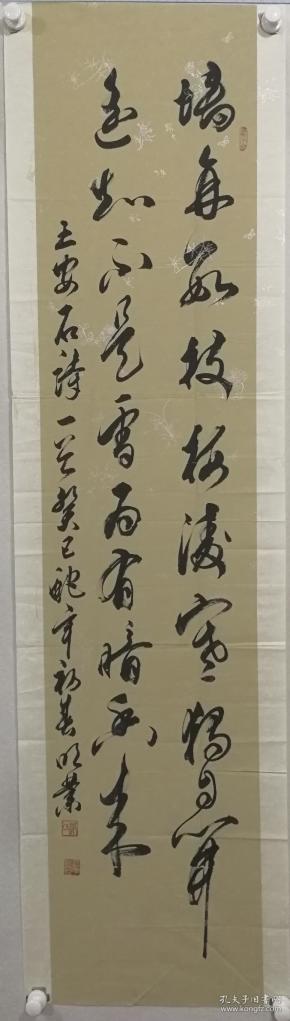 墙角数枝梅凌寒独自开
遥知不是雪为有暗香来
王安石诗一首癸巳蛇年初春明業
孔夫子旧书网
kongfz.com